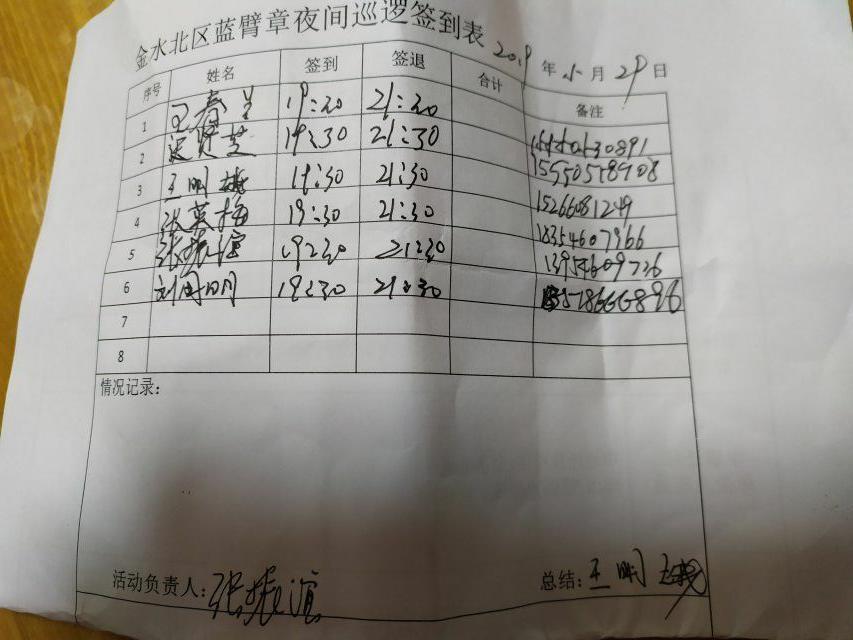 金水北区蓝臂章夜间巡逻签到表
2019年 月29日
序号 姓名 签到 签退 合计 备注
1 王春 19:30 21:30
2 芝 19:30 21:30 15550578908
3 王明 19:30 21:30 15266081249
4 张英梅 19:30 21:30 18354607966
5 张振谊 19:30 21:30 13954609736
6 刘同明 19:30 21:30
7
8
情况记录：
活动负责人：张振谊
总结：王明